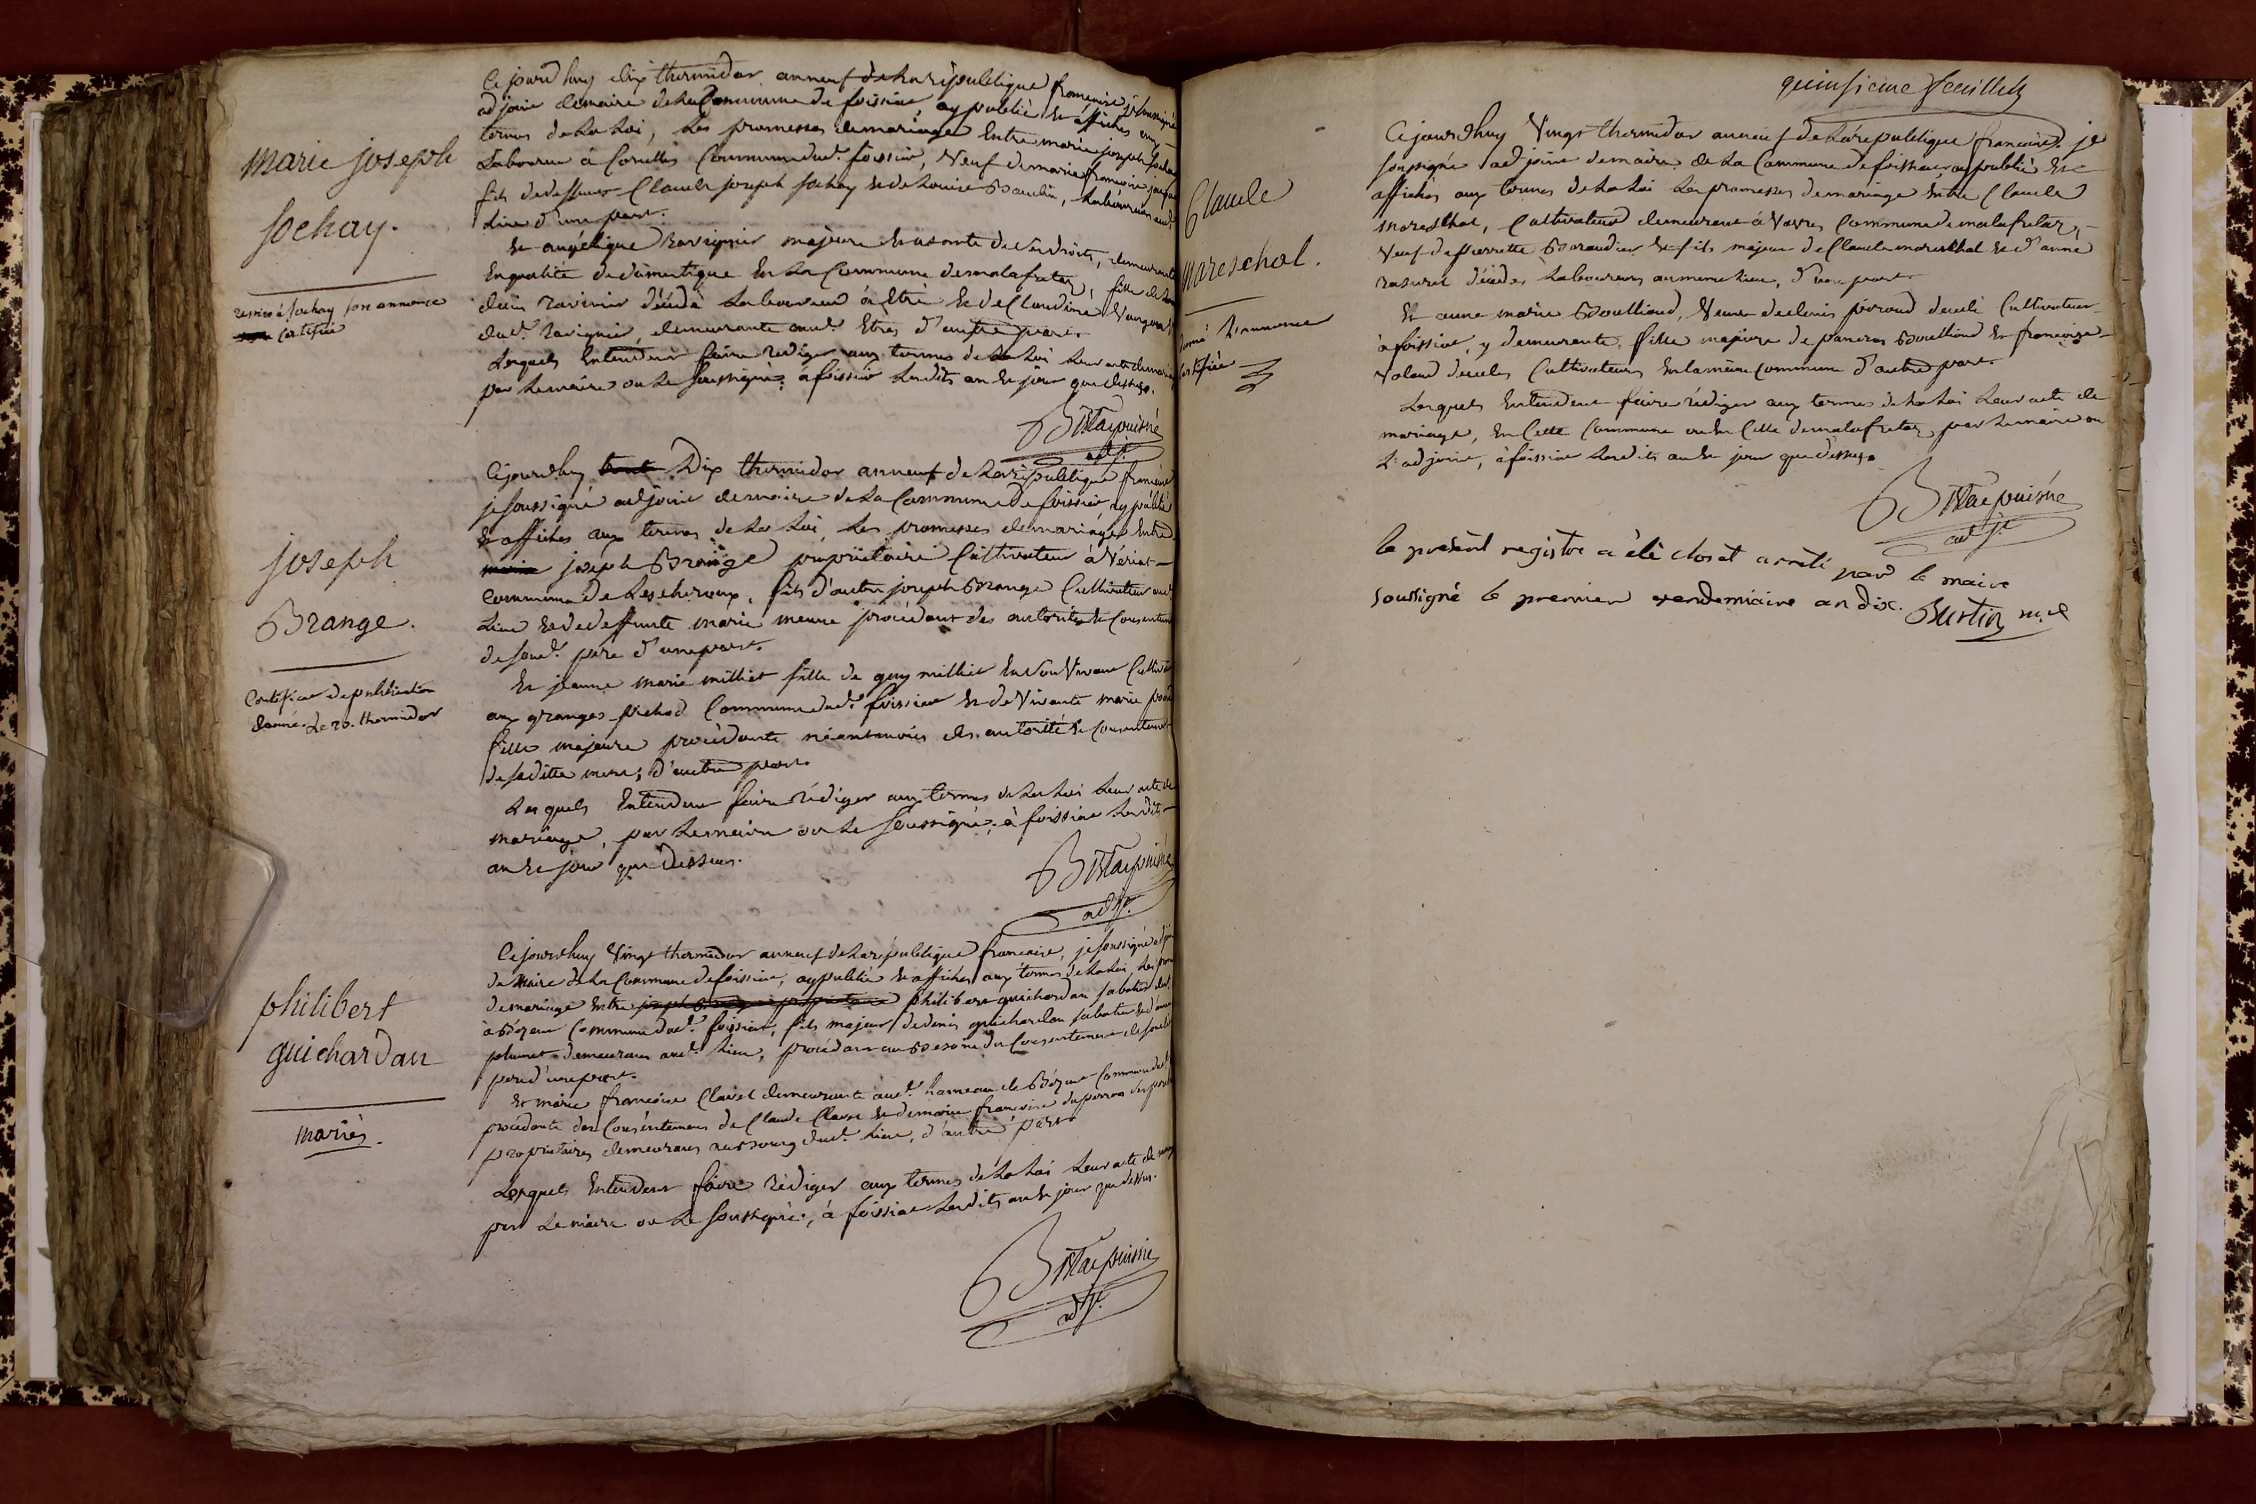 Marie joseph
sochay.
remis à sochay son annonce
certifiée
Ce jourdhuy dix thermidor an neuf de la république francaise, je soussigné
adjoint de maire de la Commune de foissiat, ay publié et affiché aux
termes de la Loi, les promesses de mariage Entre marie joseph sochay
Laboureur à Commune dud.t foissiat, Veuf de marie francoise
fils de deffunt Claude joseph sochay et de Louise Baudin, Laboureurs aud.t
Lieu d'une part.
Et angélique Ravignier majeure et usante de ses droits, demeurante
En qualité de domestique En la Commune de malafretaz, fille de
ravinier décédé Laboureur à Etré et de Claudine
dud.t Ravignier, demeurante aud.t Etrés d'autre part.
Lesquels Entendent faire rédiger aux termes de la Loi Leur acte de mariage
par Le maire ou Le soussigné, à foissiat Lesdits an et jour que dessus.
Bstac puisné
adj.t
joseph
Brange.
Certificat de publication
donné. Le 20. thermidor
Cejourdhuy dix thermidor an neuf de la république francaise
je soussigné adjoint de maire de la Commune de foissiat, ay publié
et affiché aux termes de la Loi, les promesses de mariage Entre
joseph Brange propriétaire Cultivateur à Vériat
commune de Lescheroux, fils d'autre joseph Brange Cultivateur aud.t
Lieu et de deffunte marie meure procédant des autorité et Consentement
de sond.t père d'une part.
Et jeanne marie milliet fille de guy milliet En son Vivant Cultivateur
aux granges pichod Commune dud.t foissiat et de Vivante marie
fille majeure procédante néanmoins des autorité et Consentement
de saditte mere, d'autre part.
Lesquels Entendent faire rédiger aux termes de la Loi Leur acte de
mariage, par Le maire ou Le soussigné, à foissiat Lesdits
an et jour que dessus.
Bstac puisné
adj.t
philibert
guichardan
mariés.
Ce jourdhuy Vingt thermidor an neuf de la république francaise, je soussigné adjoint
de Maire de la Commune de foissiat, ay publié et affiché aux termes de la Loi, les
de mariage Entre philibert guichardan sabotier
à Bézent Commune dud.t foissiat, fils majeur de denis guichardan sabotier et d'anne
plumet demeurans aud.t Lieu, procédant au Besoin du Consentement de
père d'une part.
Et marie francoise Claret demeurante aud.t hameau de Bézent Commune dud.t
procédante du Consentement de Claude Claret et de marie francoise duperron
propriétaires demeurans au Bourg dud.t Lieu, d'autre part.
Lesquels Entendent faire rédiger aux termes de la Loi Leur acte de
par Le maire ou Le soussigné, à foissiat Lesdits an et jour que dessus.
Bstac puisné
adj.t
quinsieme feuillet
Claude
Mareschal.
donné L'annonce
certifiée
Cejourdhuy Vingt thermidor an neuf de la république francaise. je
soussigné adjoint de maire de la Commune de foissiat, ay publié et
affiché aux termes de la Loi les promesses de mariage Entre Claude
mareschal, Cultivateur demeurant à Vavres Commune de malafretaz,
Veuf de pierrette Buraudier et fils majeur de Claude mareschal et d'anne
rasurel décédés Laboureurs au meme Lieu, d'une part.
Et anne marie Boulliand, Veuve de denis péroud décédé Cultivateur
à foissiat, y demeurante, fille majeure de pancras Boulliand et francoise
Voland décédés Cultivateurs En la même commune d'autre part.
Lesquels Entendent faire rédiger aux termes de la Loi Leur acte de
mariage, En Cette Commune ou En Celle de malafretaz, par Le maire ou
L'adjoint, à foissiat Lesdits an et jour que dessus.
Bstac puisné
adj.t
le présent registre a été clos et arrêté par le maire
soussigné le premier vendemiaire an dix. Burtin m.e